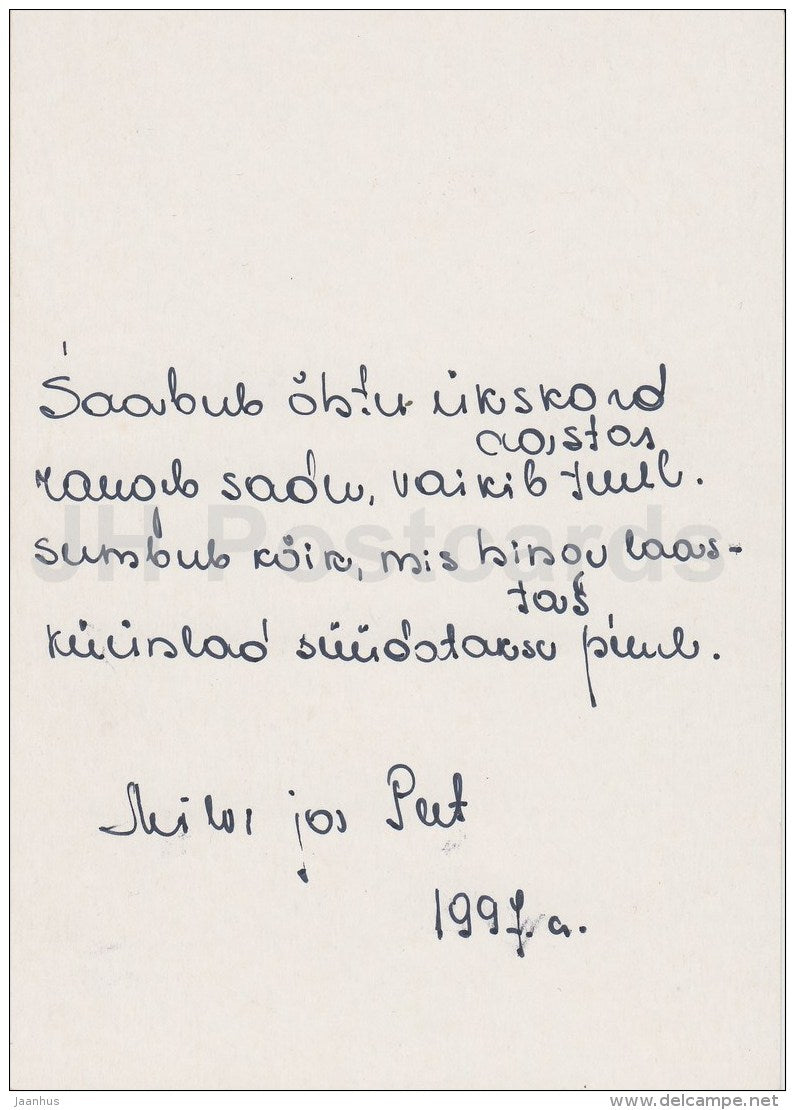 Saabub õhtu ükskord
aastas
raugeb sadu, vaikib tuul.
sumbub kõik, mis hinge laas-
tas
küünlad süüdatakse puul.
Milvi ja Peet
1997.a.
JH Postcards
Jaanhus
delcampe.net